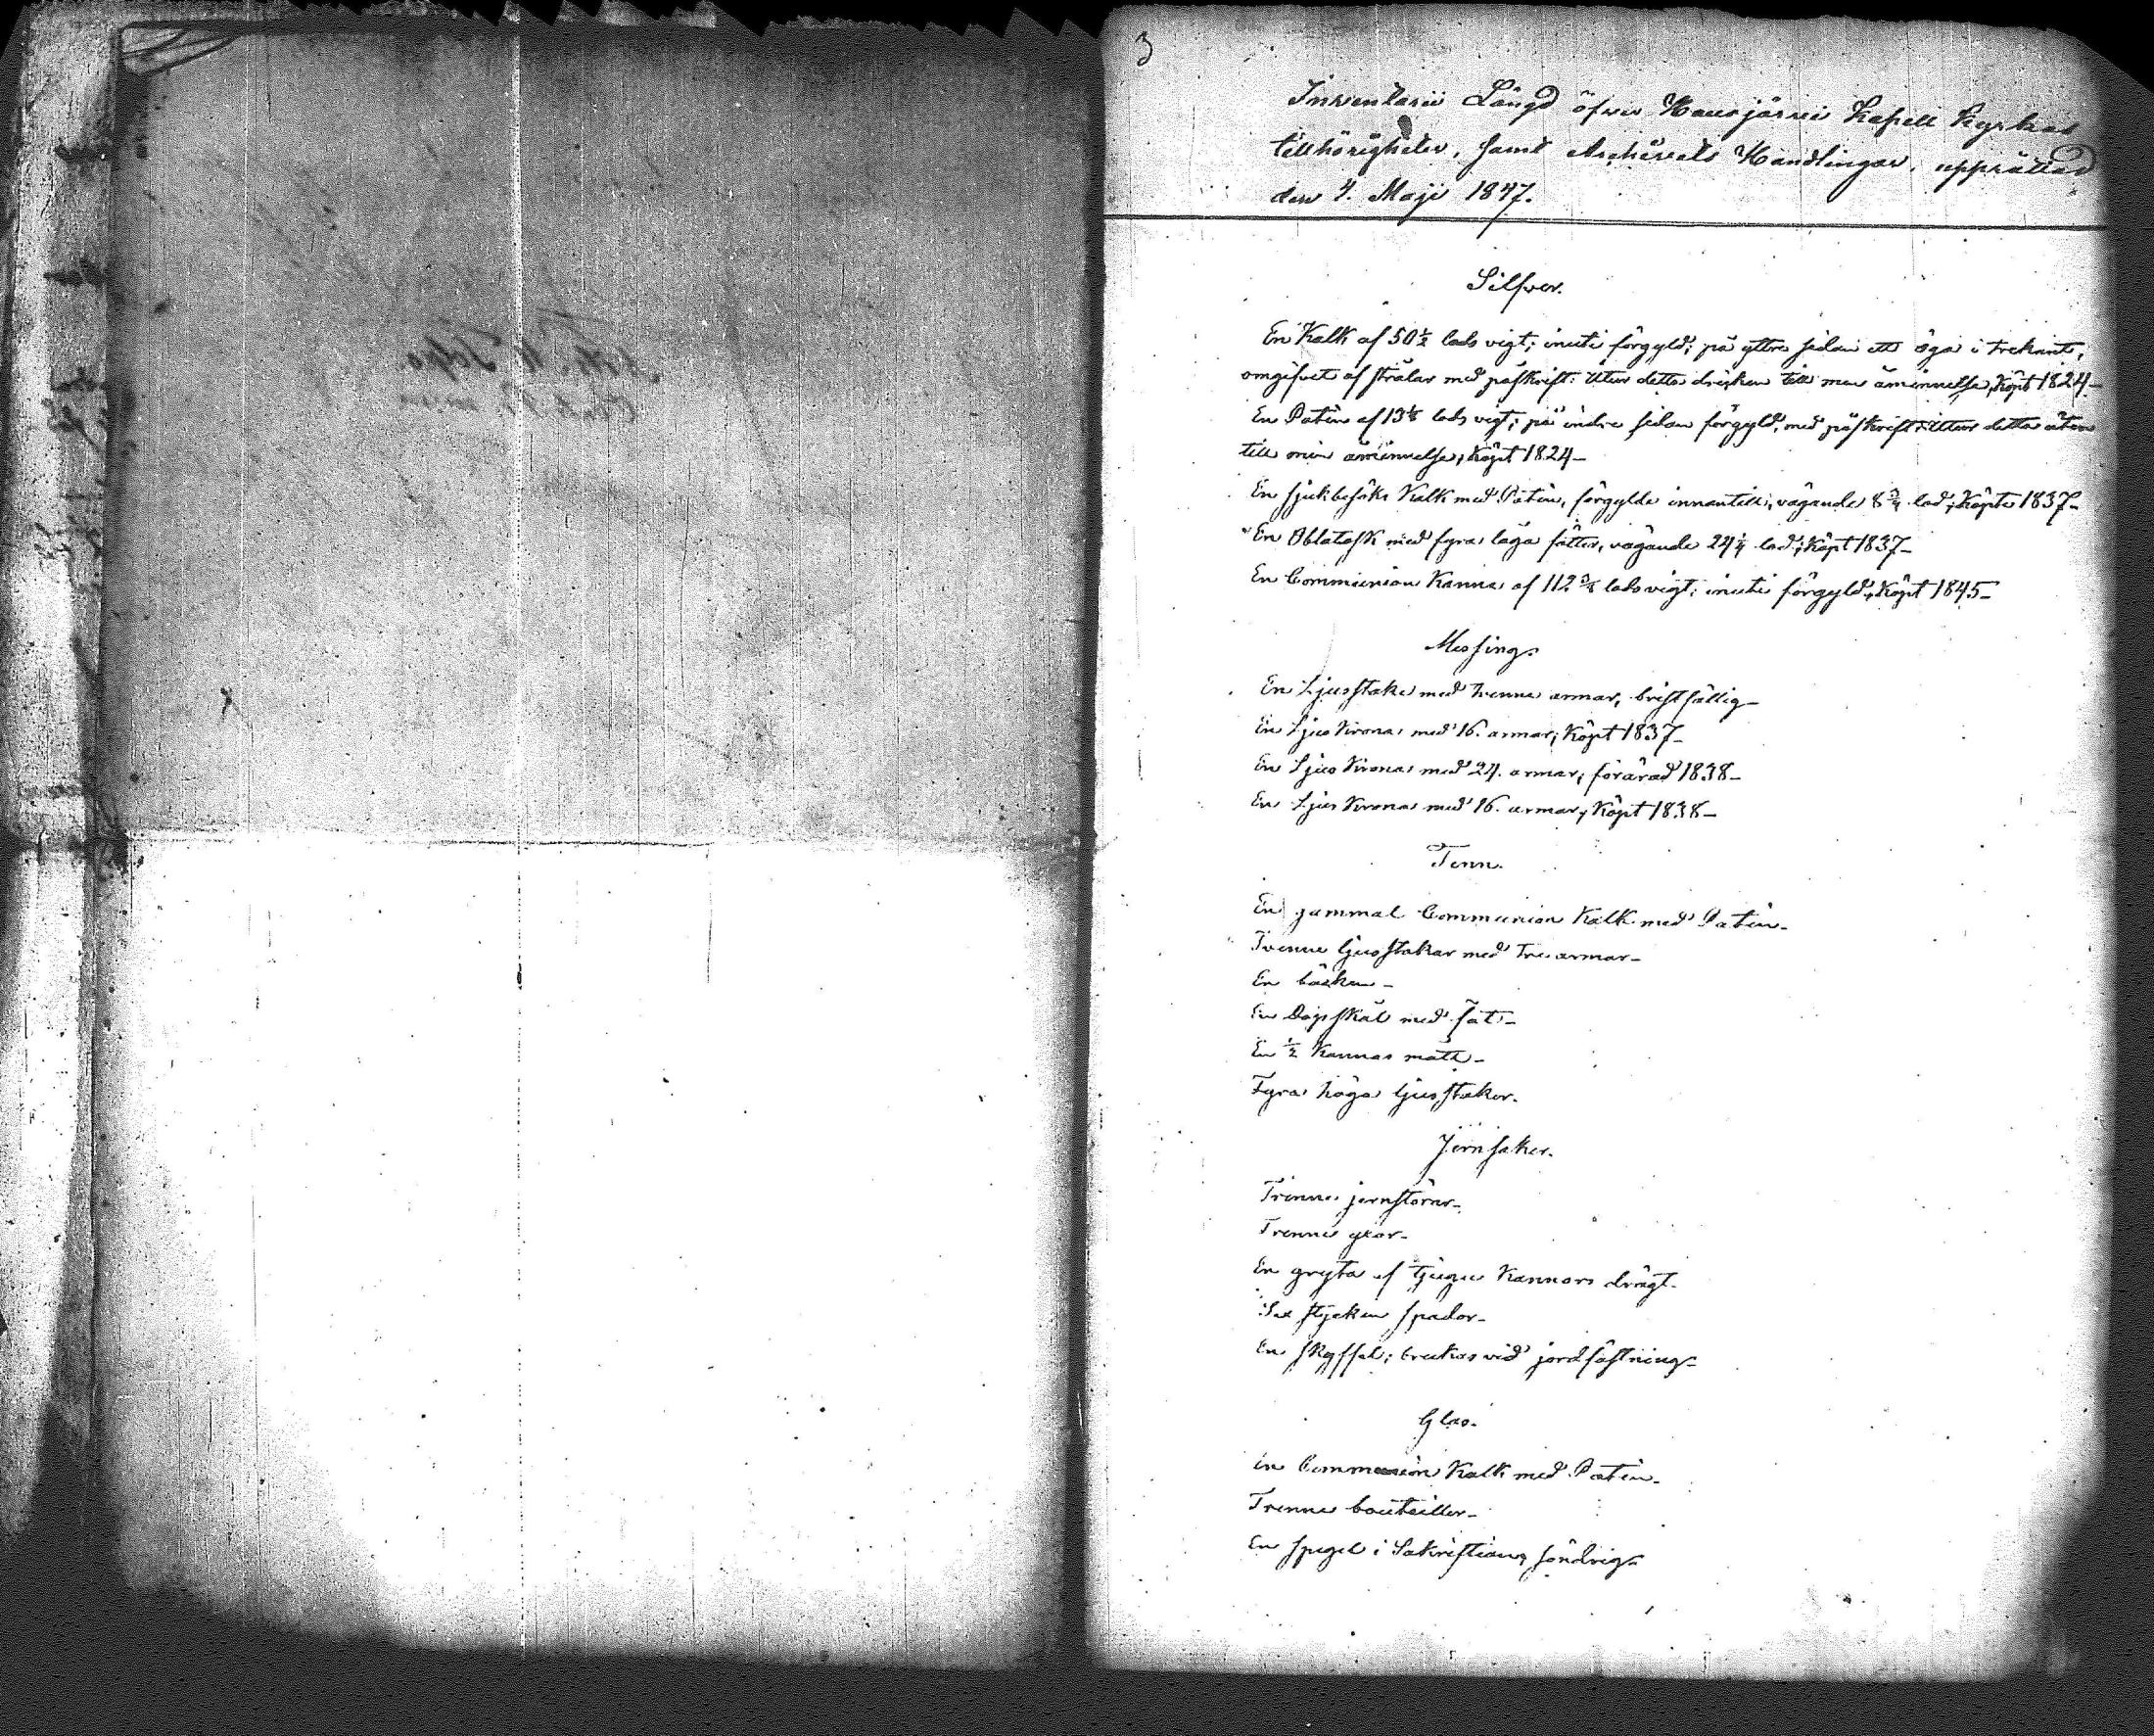 3
Inventarii Längd öfver Hausjärvi Kapell Kyrkas
tillhörigheter, samt Archivets Handlingar, upprättad
den 4. Maji 1847.
Silfver.
En Kalk af 50½ lods vigt; inuti förgyld; på yttre sidan ett öga i trekant,
omgifvet af strålar med påskrift: Utur detta dricken till min åminnelse, Köpt 1824_
En Patén af 13⅛ lods vigt; på indre sidan förgyld, med påskrift: Utur detta äten
till min åminnelse, Köpt 1824_
En sjukbesöks Kalk med Patén, förgylda innantill, vägande 8¾ lod; Köpte 1837_
En Oblatask med fyra låga fötter, vägande 24¼ lod; Köpt 1837_
En Communion Kanna af 112 lods vigt; inuti förgyld, Köpt 1845_
Messing.
En Ljusstake med tvenne armar, bristfällig_
En Ljus Krona med 16. armar; Köpt 1837_
En Ljus Krona med 24. armar; förärad 1838_
En Ljus Krona med 16. armar; Köpt 1838_
Tenn.
En gammal Communion Kalk med Patén_
Tvenne ljusstakar med tre armar_
En bäcken_
En Dopskål med fat_
En ½ Kannas mått_
Fyra höga ljusstakar.
Jernsaker.
Trenne jernstörar_
Trenne yxor_
En gryta af tjugu Kannors drägt_
Sex stycken spador_
En skyffel; brukas vid jordfästning_
Glas.
En Communion Kalk med Patén_
Trenne bouteiller_
En spegel i Sakristian, söndrig_